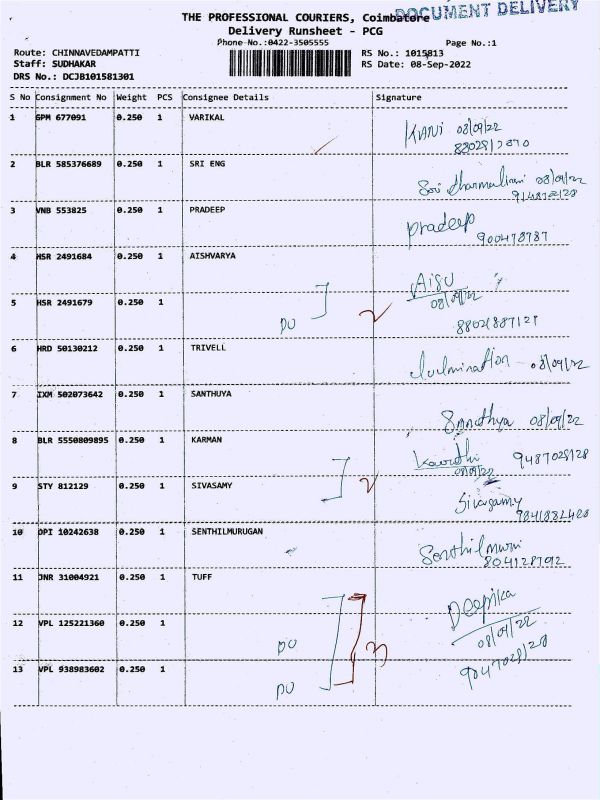 DOCUMENT DELIVERY
THE PROFESSIONAL COURIERS, Coimbatore
Delivery Runsheet - PCG
Phone No.:0422-3505555 Page No.:1
Route: CHINNAVEDAMPATTI RS No.: 1015813
Staff: SUDHAKAR RS Date: 08-Sep-2022
DRS No.: DCJB101581301
S No Consignment No Weight PCS Consignee Details Signature
1 GPM 677091 0.250 1 VARIKAL
08/09/22
2 BLR 585376689 0.250 1 SRI ENG
08/09/22
3 VNB 553825 0.250 1 PRADEEP
pradeep
900478787
4 HSR 2491684 0.250 1 AISHVARYA
08/09/22
5 HSR 2491679 0.250 1
DO 2
6 HRD 50130212 0.250 1 TRIVELL
08/09/22
7 IXM 502073642 0.250 1 SANTHUYA
08/09/22
8 BLR 5550809895 0.250 1 KARMAN
9487028128
08/09/22
9 STY 812129 0.250 1 SIVASAMY
2 Sivasamy
10 OPI 10242638 0.250 1 SENTHILMURUGAN
11 JNR 31004921 0.250 1 TUFF
Deepika
12 VPL 125221360 0.250 1
08/09/22
DO 3
9047028128
13 VPL 938983602 0.250 1
DO